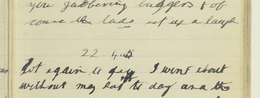 you jabbering niggers & of
course the lads set up a laugh
22
got again to day I went about
without may eat to day and the